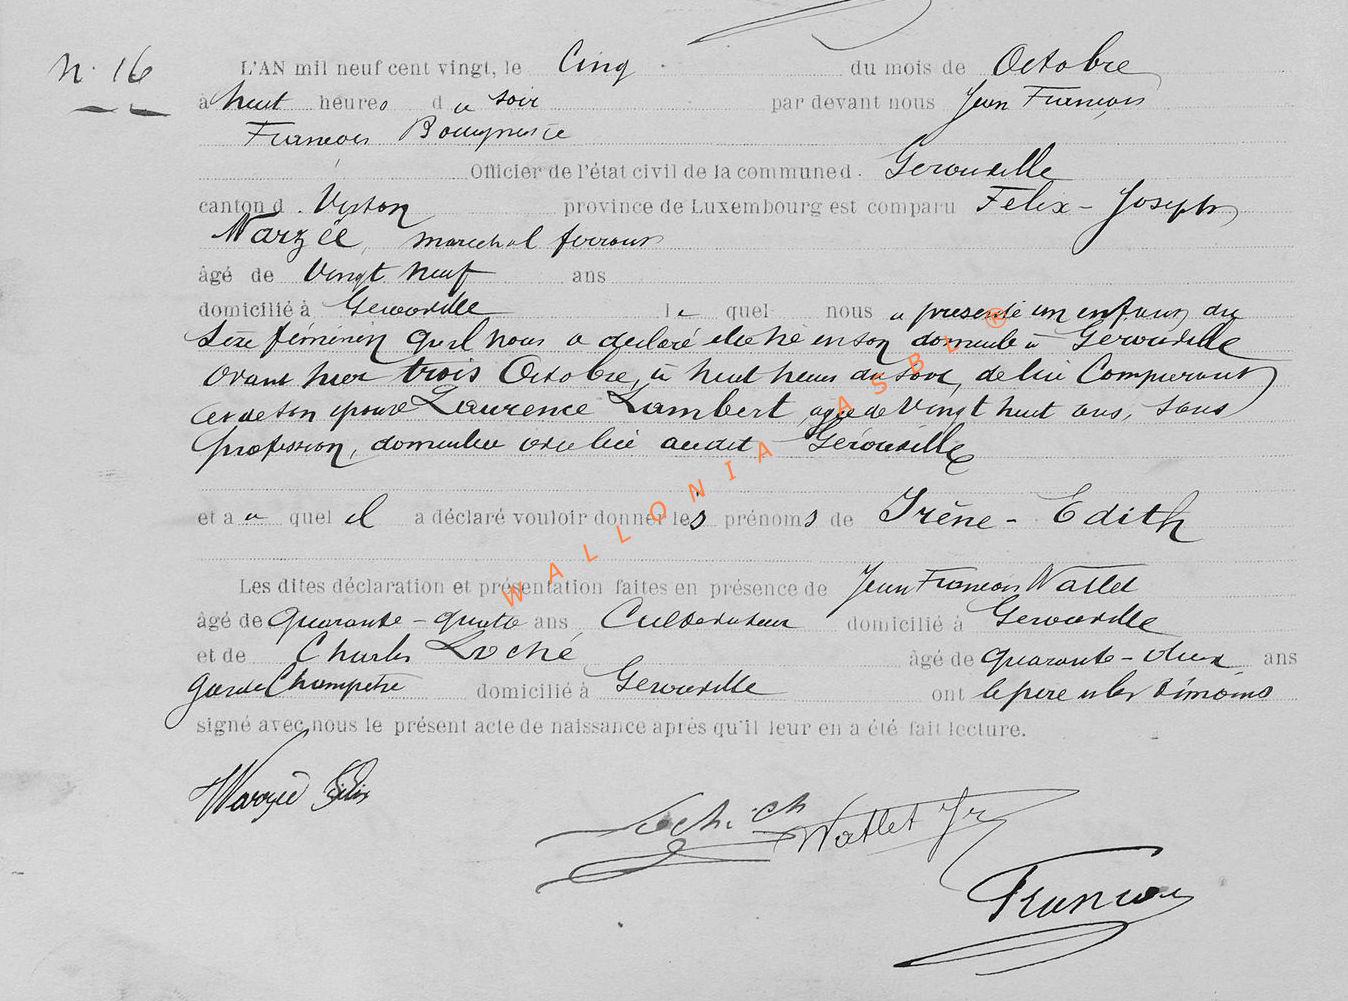 N. 16
L'AN mil neuf cent vingt, le Cinq du mois de Octobre
à huit heures du soir par devant nous Jean François
François Bourguer
Officier de l'état civil de la commune d. Gerouville
canton d. Virton province de Luxembourg est comparu Félix-Joseph
Warzée, maréchal ferrant
âgé de vingt neuf ans
domicilié à Gerouville lequel nous a présenté un enfant du
sexe féminin qu'il nous a déclaré être né en son domicile à Gerouville
avant hier trois Octobre, à huit heures du soir, de lui Comparant
et de son épouse Laurence Lambert, agée de vingt huit ans, sans
profession, domiciliée avec lui audit Gérouville
et a auquel il a déclaré vouloir donner les prénoms de Irène - Edith
Les dites déclaration et présentation faites en présence de Jean François Watlet
âgé de quarante-quatre ans Cultivateur domicilié à Gerouville
et de Charles Loché âgé de quarante-deux ans
garde Champêtre domicilié à Gerouville ont le père et les témoins
signé avec nous le présent acte de naissance après qu'il leur en a été fait lecture.
Warzée Félix
Loché ch
Watlet Jf
François
WALLONIA ASBL ®